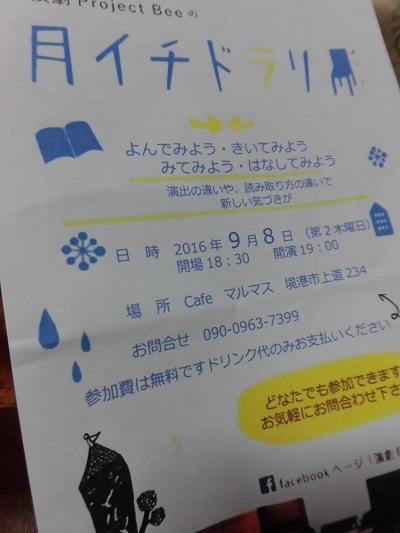 演劇Project Beeの
月イチドラリ
よんでみよう・きいてみよう
みてみよう・はなしてみよう
演出の違いや、読み取り方の違いで
新しい気づきが
日 時 2016年9月8日（第2木曜日）
開場18：30 開演19：00
場 所 Cafe マルマス 境港市上道234
お問合せ 090-0963-7399
参加費は無料ですドリンク代のみお支払いください
どなたでも参加できます
お気軽にお問合わせ下さ
facebookページ「演劇